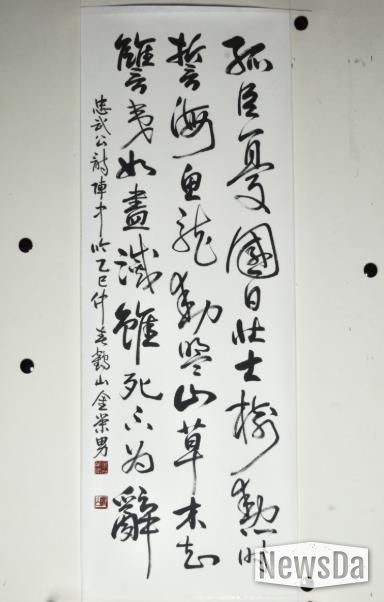 孤臣憂國日壯士樹勲時
誓海魚龍動盟山草木知
讐夷如盡滅雖死不為辭
忠武公詩陣中吟乙巳仲春鶴山金榮男
NewsDa